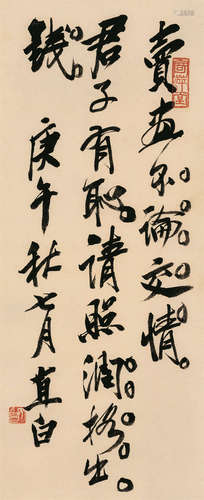 賣画不論交情
君子有恥請照潤格出
錢庚午秋七月直白